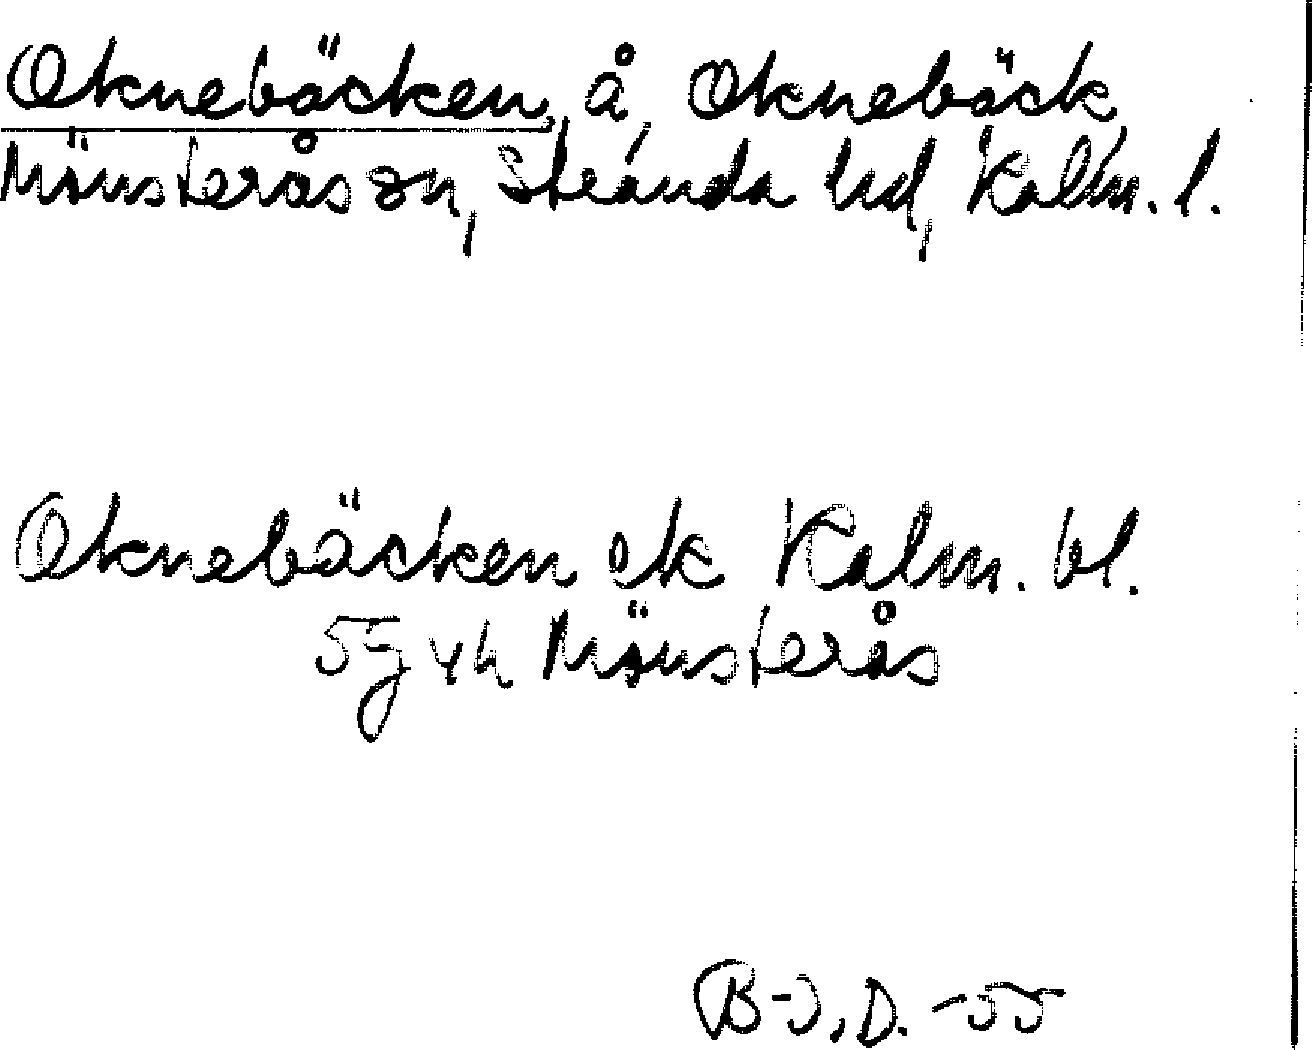 Oknebäcken, å, Oknebäck,
Mönsterås sn, Stranda hd, Kalm. l.
Oknebäcken ek Kalm. bl.
5g yh Mönsterås
B-J, D. -55